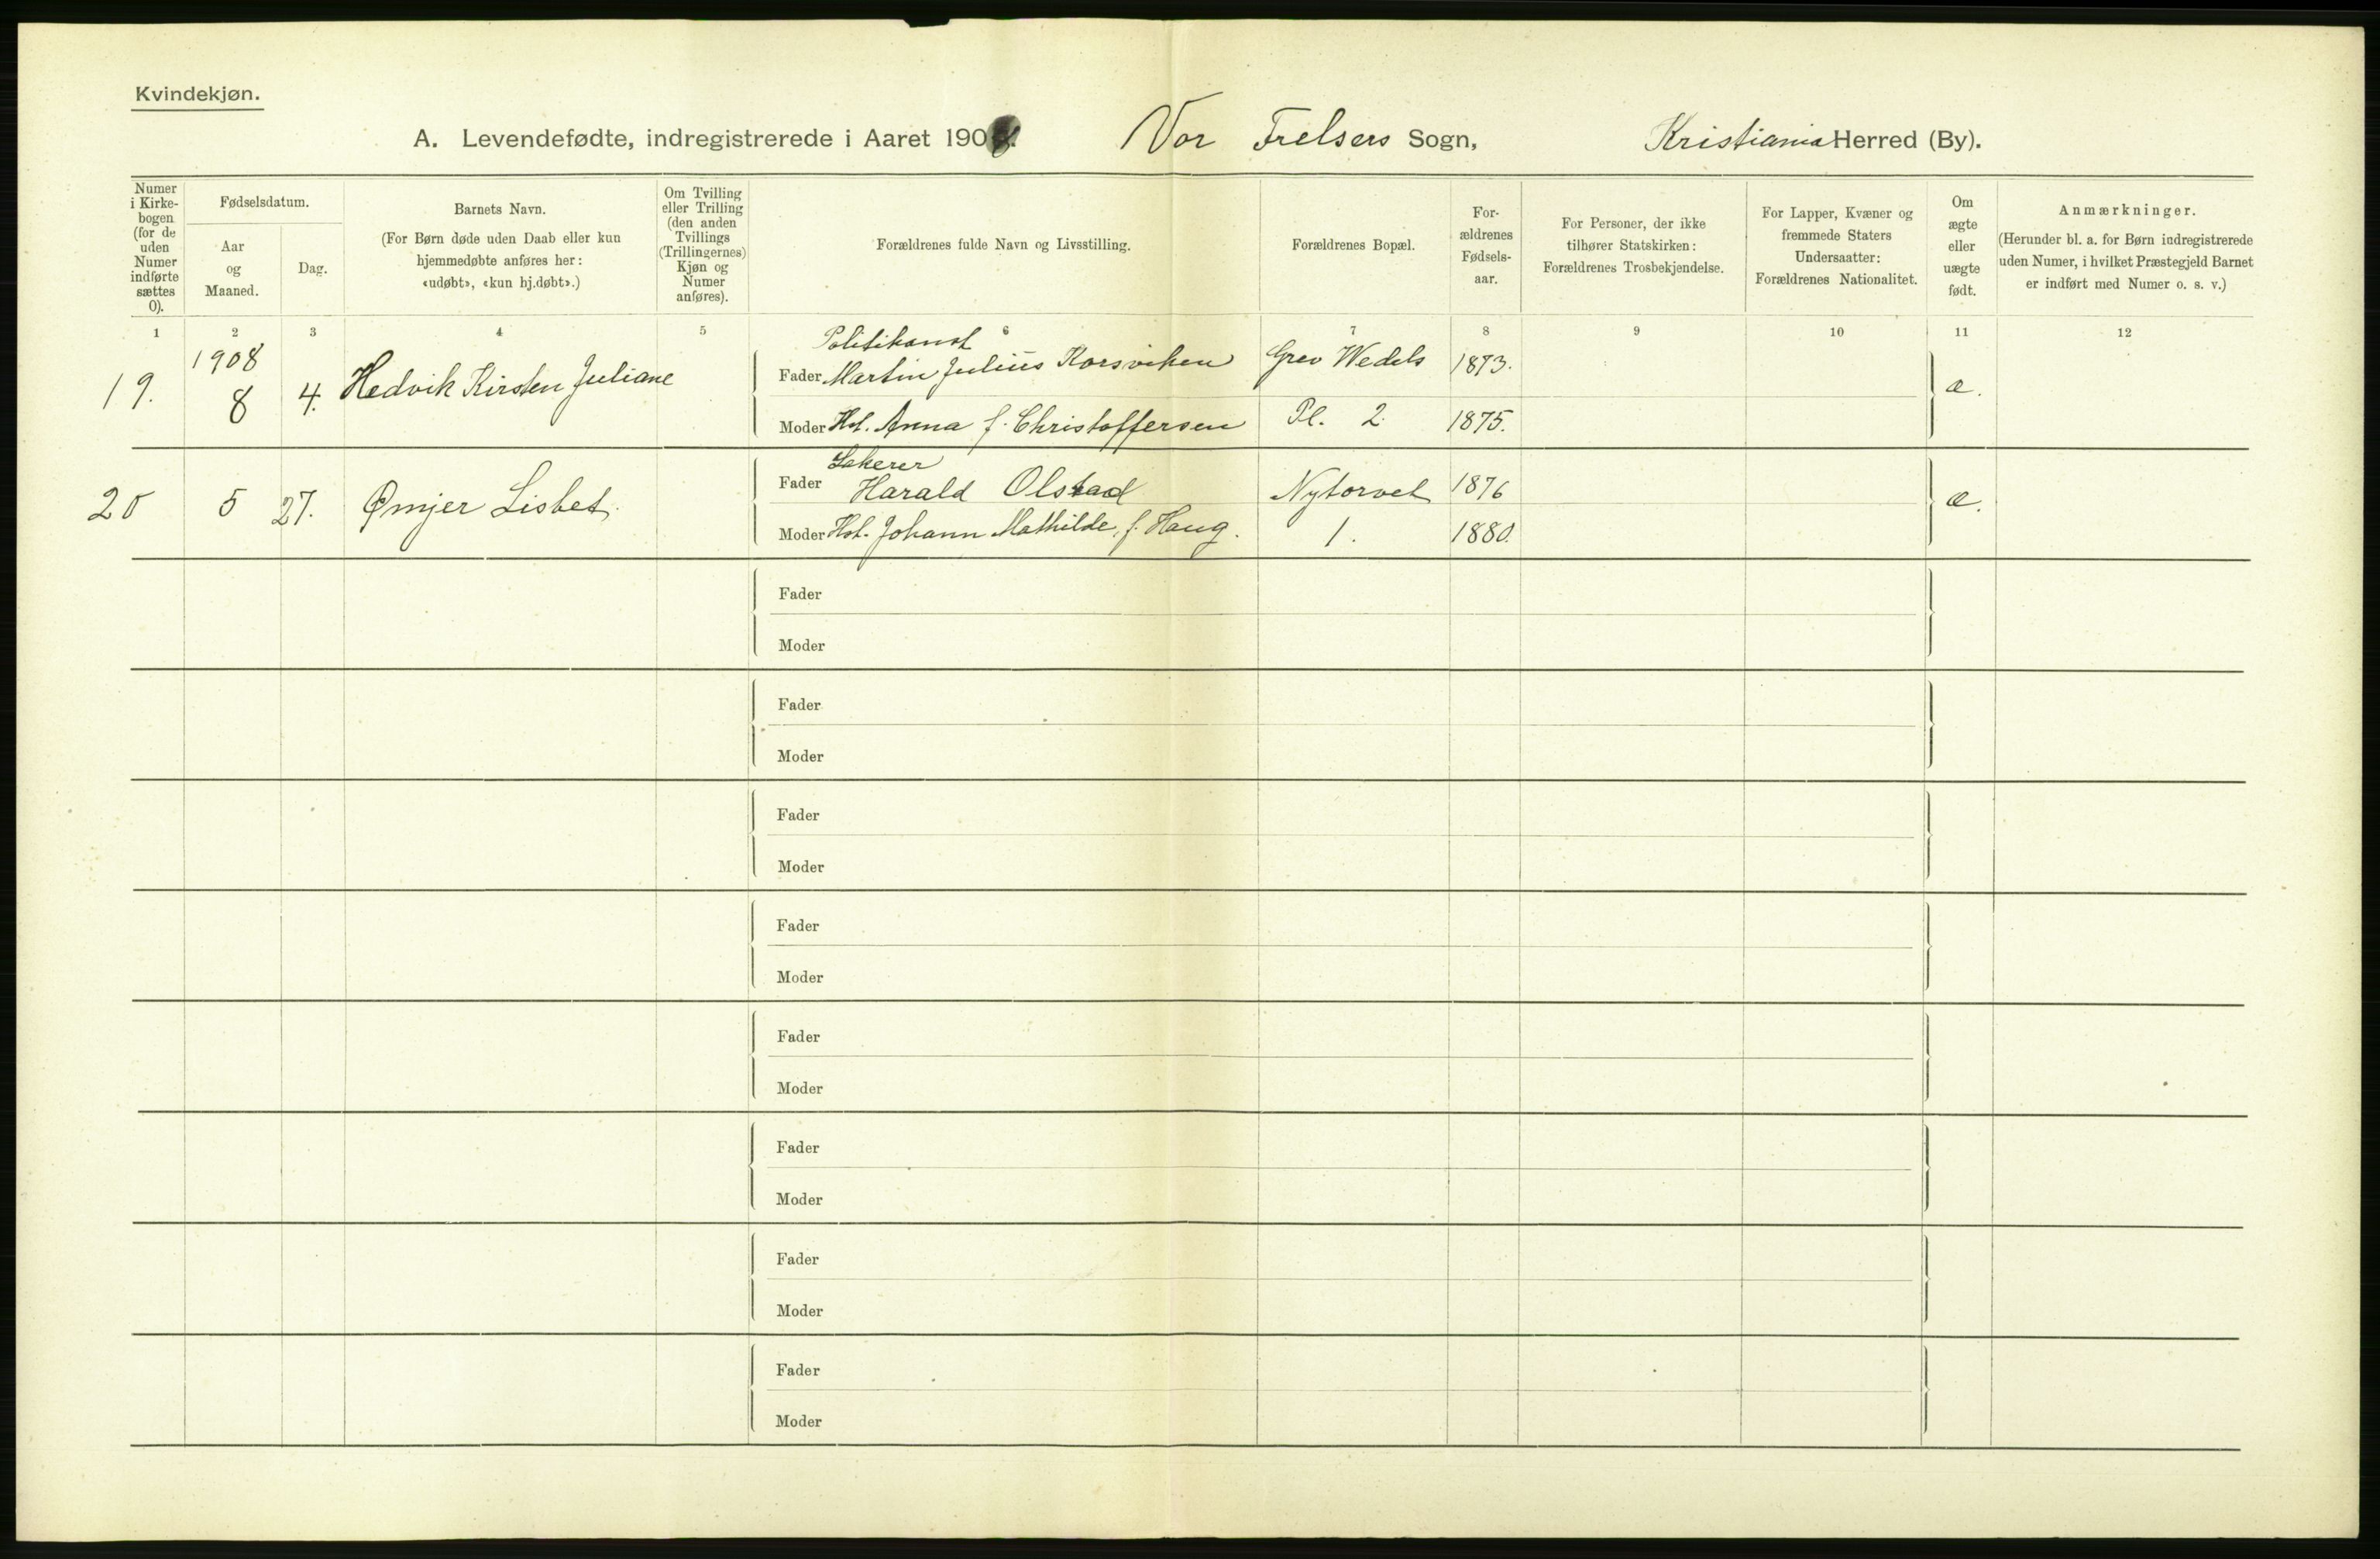 Kvindekjøn.
A. Levendefødte, indregistrerede i Aaret 190 Vor Frelsers Sogn, Kristiania Herred (By).
Numer i Kirke-bogen (for de uden Numer indførte sættes 0).
Fødselsdatum.
Aar og Maaned.
Dag.
Barnets Navn.
(For Børn døde uden Daab eller kun
hjemmedøbte anføres her:
«udøbt», «kun hj.døbt».)
Om Tvilling
eller Trilling
(den anden
Tvillings
(Trillingernes)
Kjøn og
Numer
anføres).
Forældrenes fulde Navn og Livsstilling.
Forældrenes Bopæl.
For-
ældrenes
Fødsels-
aar.
For Personer, der ikke
tilhører Statskirken:
Forældrenes Trosbekjendelse.
For Lapper, Kvæner og
fremmede Staters
Undersaatter:
Forældrenes Nationalitet.
Om
ægte
eller
uægte
født.
Anmærkninger.
(Herunder bl. a. for Børn indregistrerede
uden Numer, i hvilket Præstegjeld Barnet
er indført med Numer o. s. v.)
1 2 3 4 5 6 7 8 9 10 11 12
1908
Politikonst
19. 8 4. Hedvik Kirsten Juliane Fader Martin Julius Korsviken Grev Wedels 1873. æ.
Moder Hst. Anna f. Christoffersen Pl. 2. 1875.
Lakerer
20 5 27. Ømjer Lisbet. Fader Harald Olstad Nytorvet 1876 æ.
Moder Hst. Johann Mathilde, f. Haug. 1. 1880.
Fader
Moder
Fader
Moder
Fader
Moder
Fader
Moder
Fader
Moder
Fader
Moder
Fader
Moder
Fader
Moder